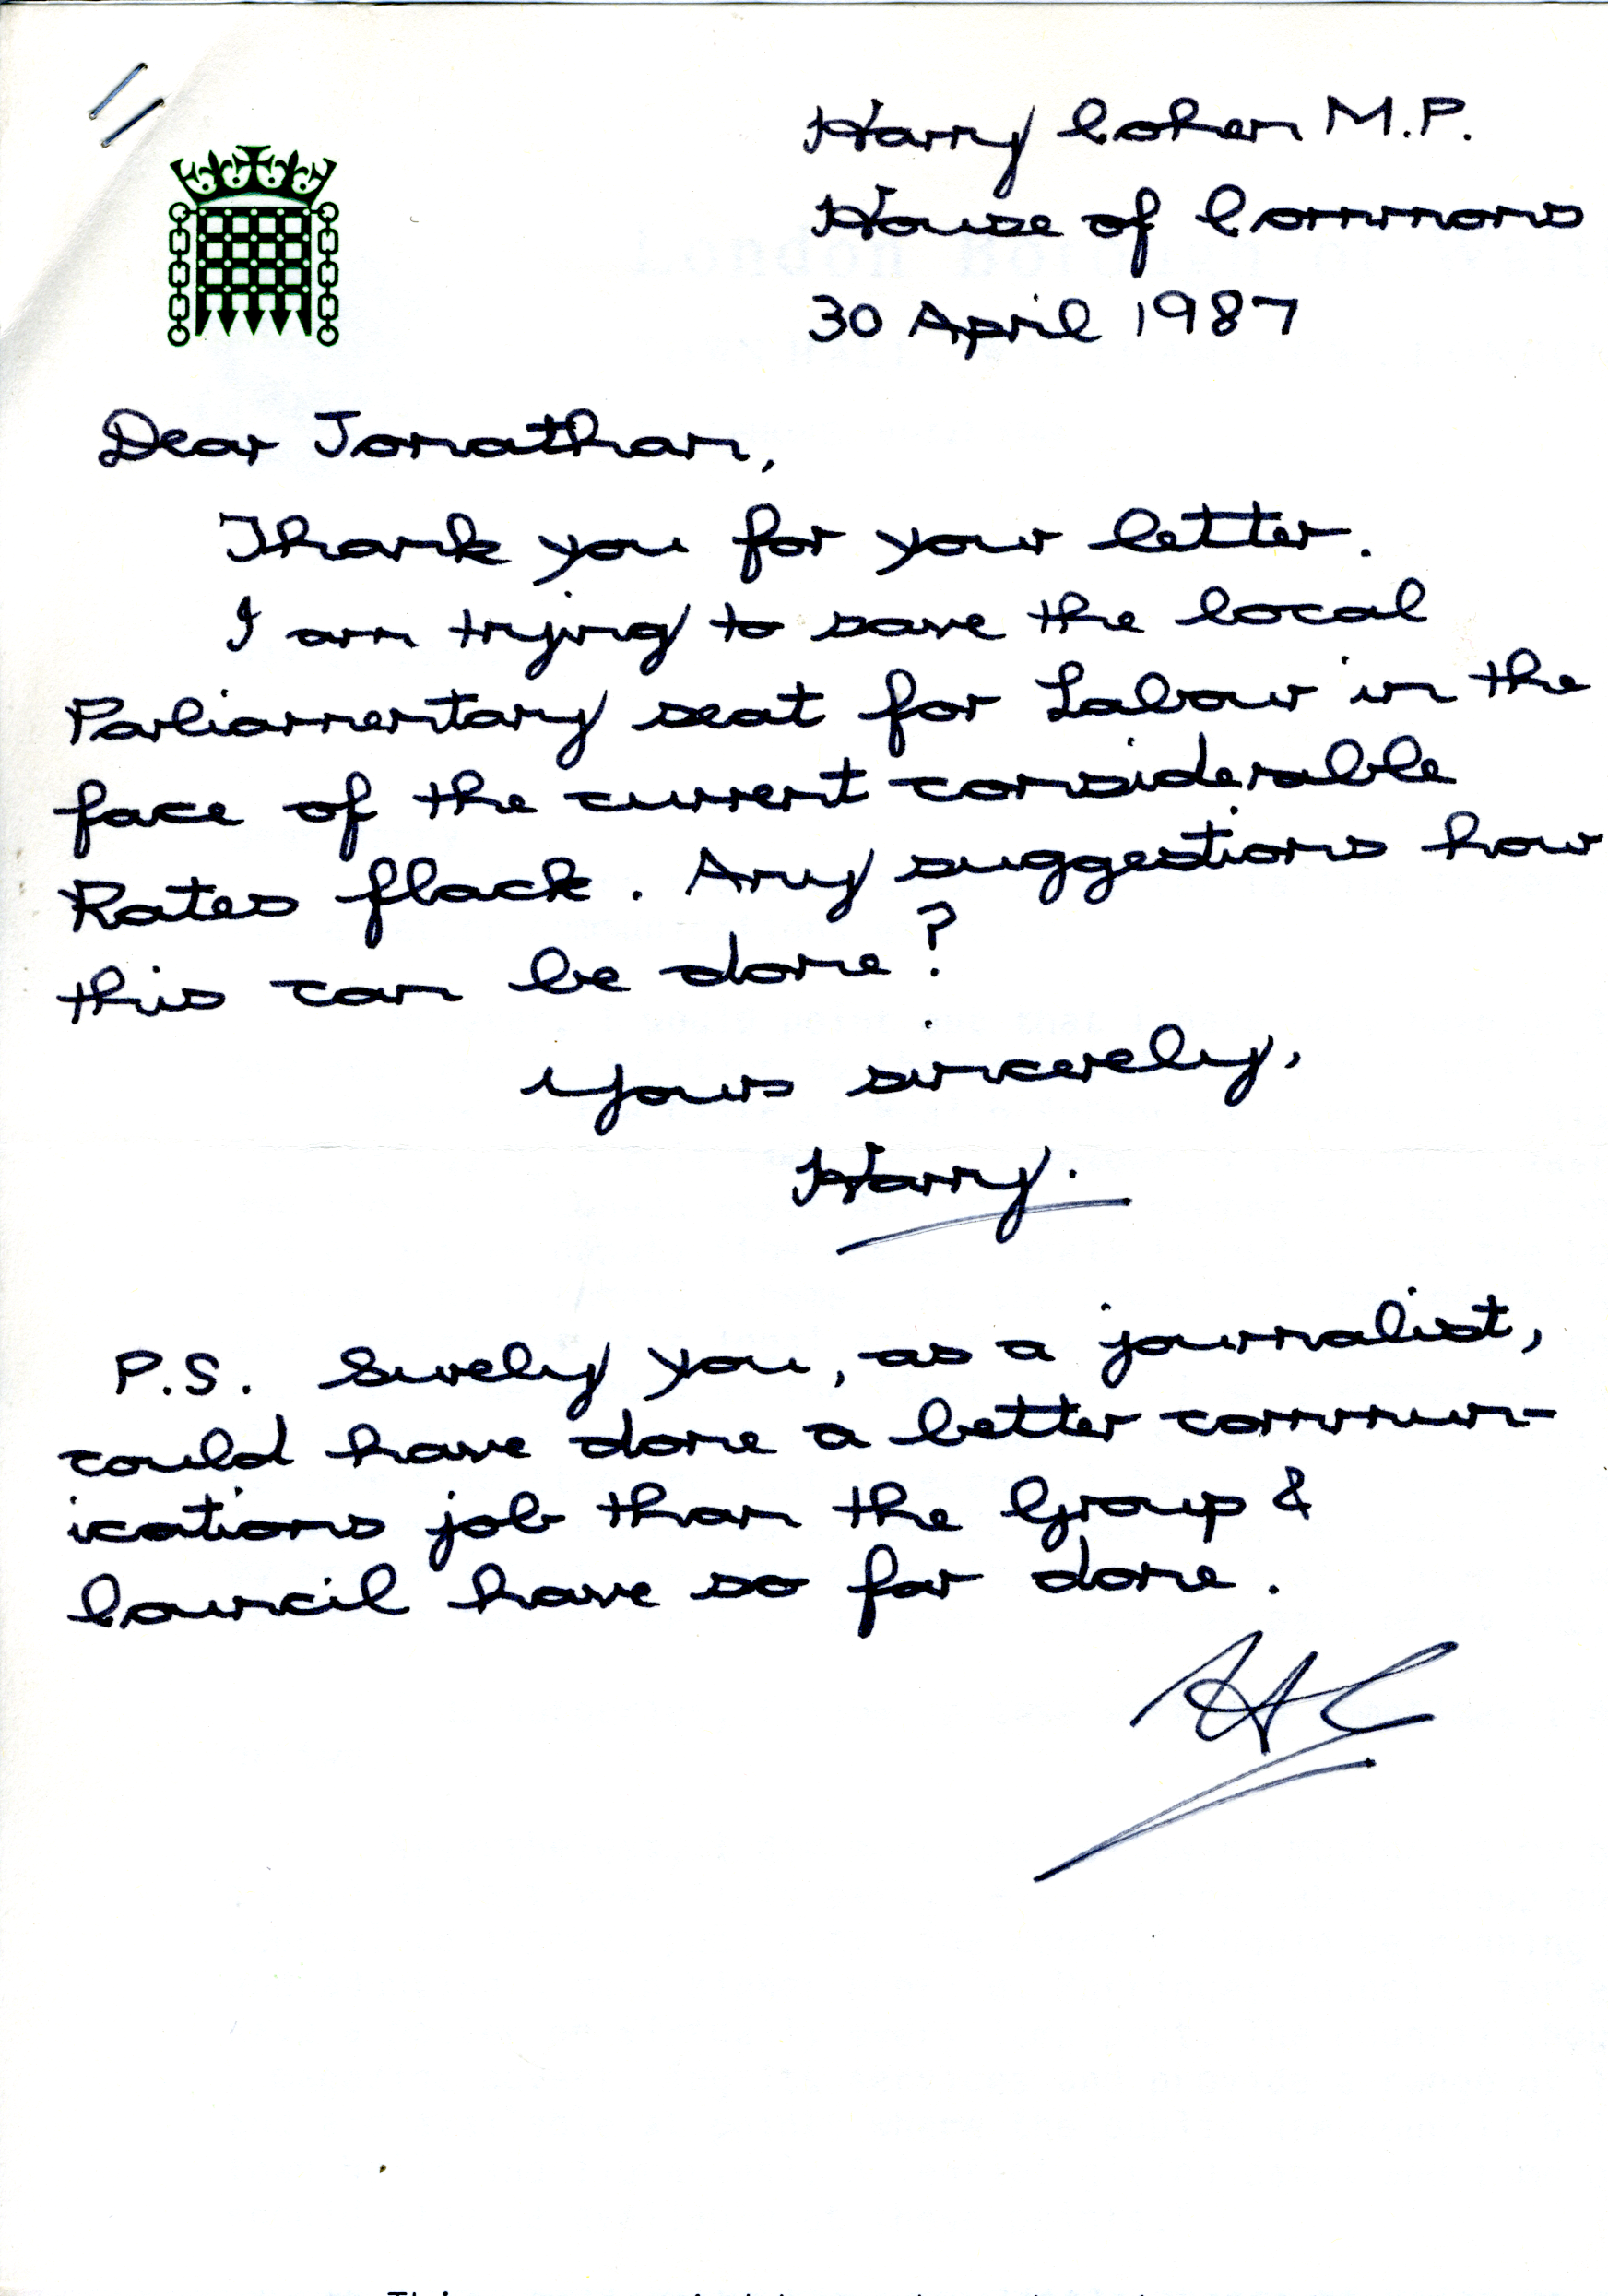 Harry Cohen M.P.
House of Commons
30 April 1987
Dear Jonathan,
Thank you for your letter.
I am trying to save the local
Parliamentary seat for Labour in the
face of the current considerable
Rates flack. Any suggestions how
this can be done?
Yours sincerely,
Harry.
P.S. Surely you, as a journalist,
could have done a better commun-
ications job than the Group &
Council have so far done.
HC